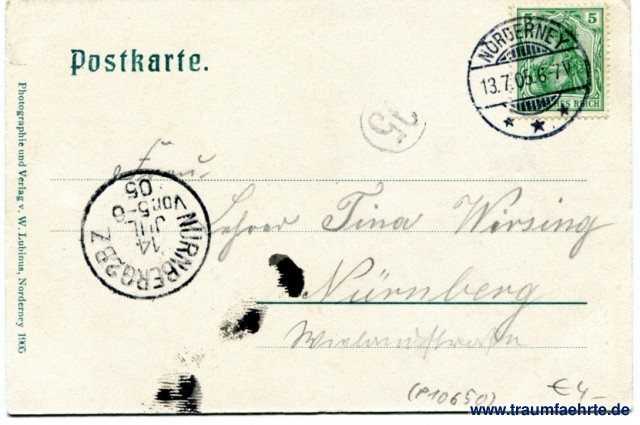 Postkarte.
5
DEUTSCHES REICH
NORDERNEY
13.7.05.6-7V.
* * *
15
Frau
Lehrer Tina Wirsing
Nürnberg
Wielandstraße
NÜRNBERG2BZ
14
JUL
VOR5-6
05
Photographie und Verlag v. W. Lubinus, Norderney 1905
(P10650)
€4-
www.traumfaehrte.de